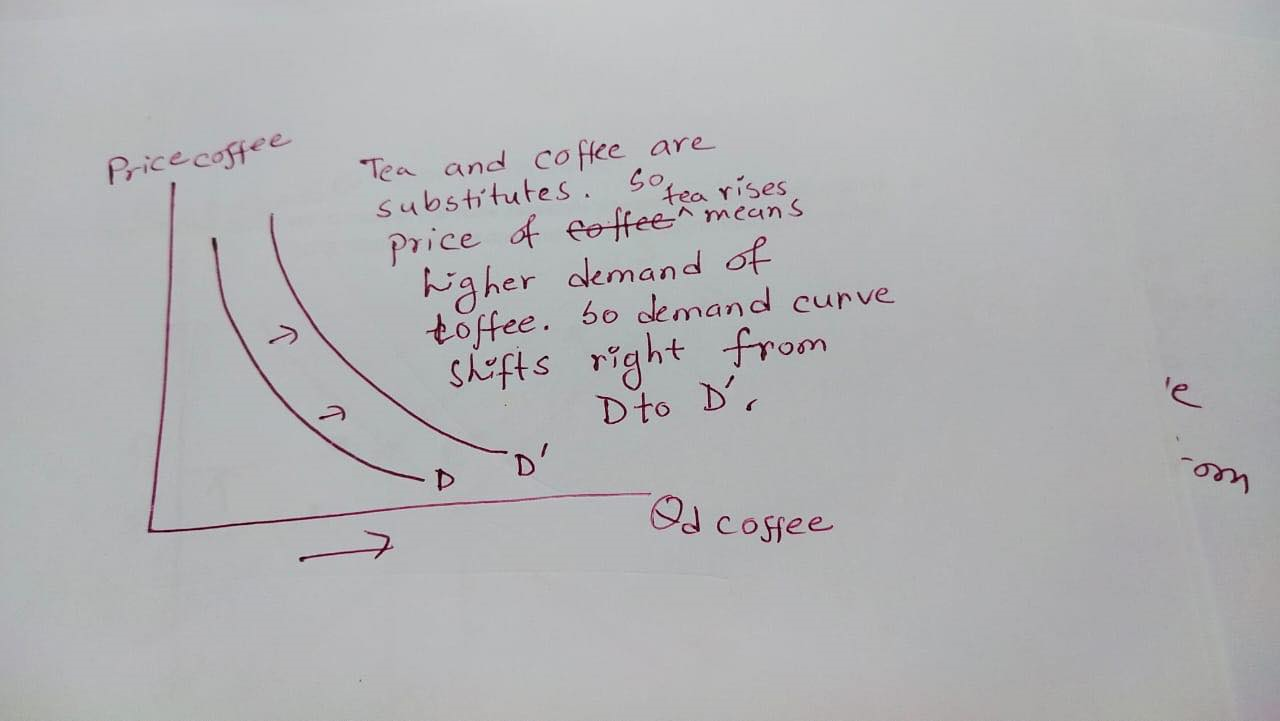 Price coffee
Tea and coffee are
substitutes. So
tea rises
price of coffee ^ means
higher demand of
coffee. So demand curve
shifts right from
D to D'.
D
D'
Qd coffee
'e